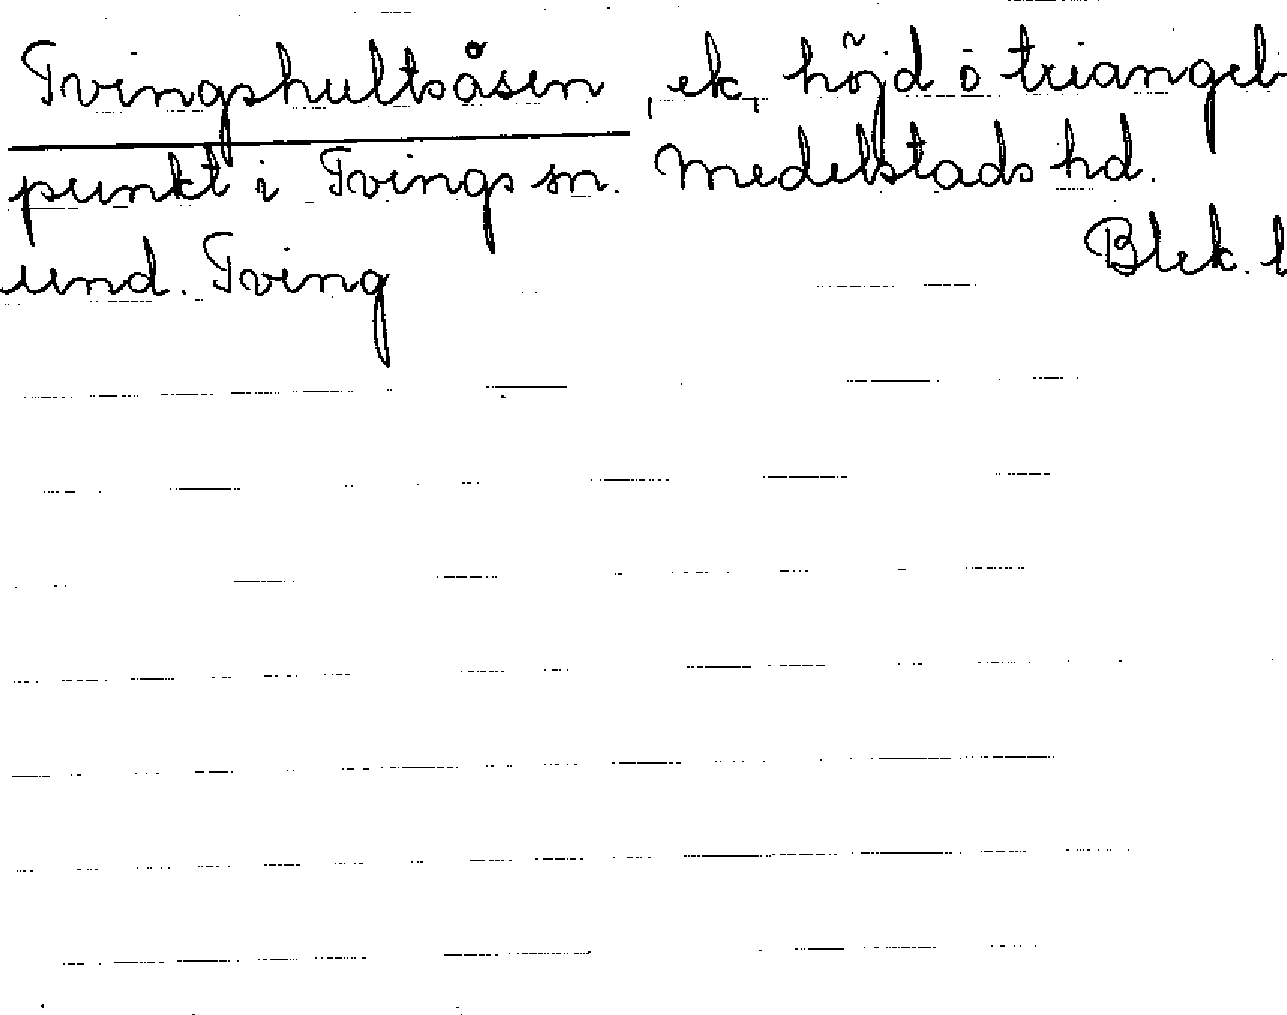 Tvingshultsåsen, ek, höjd o triangel
punkt i Tvings sn. Medelstads hd.
Blek. l
und. Tving